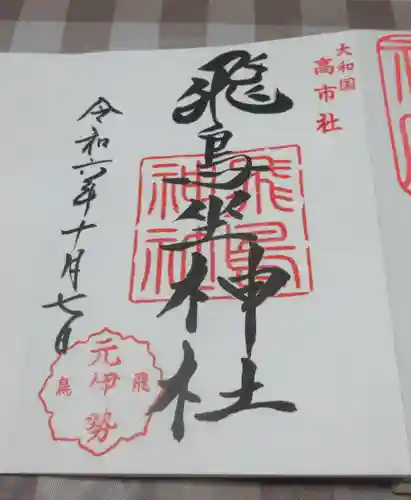 大和国
高市社
飛鳥坐神社
飛鳥
神社
令和六年十月七日
元伊勢
飛
鳥